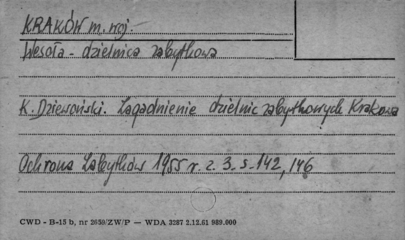 KRAKÓW m. woj. -
Wesoła - dzielnica zabytkowa
K. Dziewoński. Zagadnienie dzielnic zabytkowych Krakowa
Ochrona Zabytków 1955 r. z. 3. s. 142, 146
CWD - B-15 b, nr 2659/ZW/P — WDA 3287 2.12.61 989.000